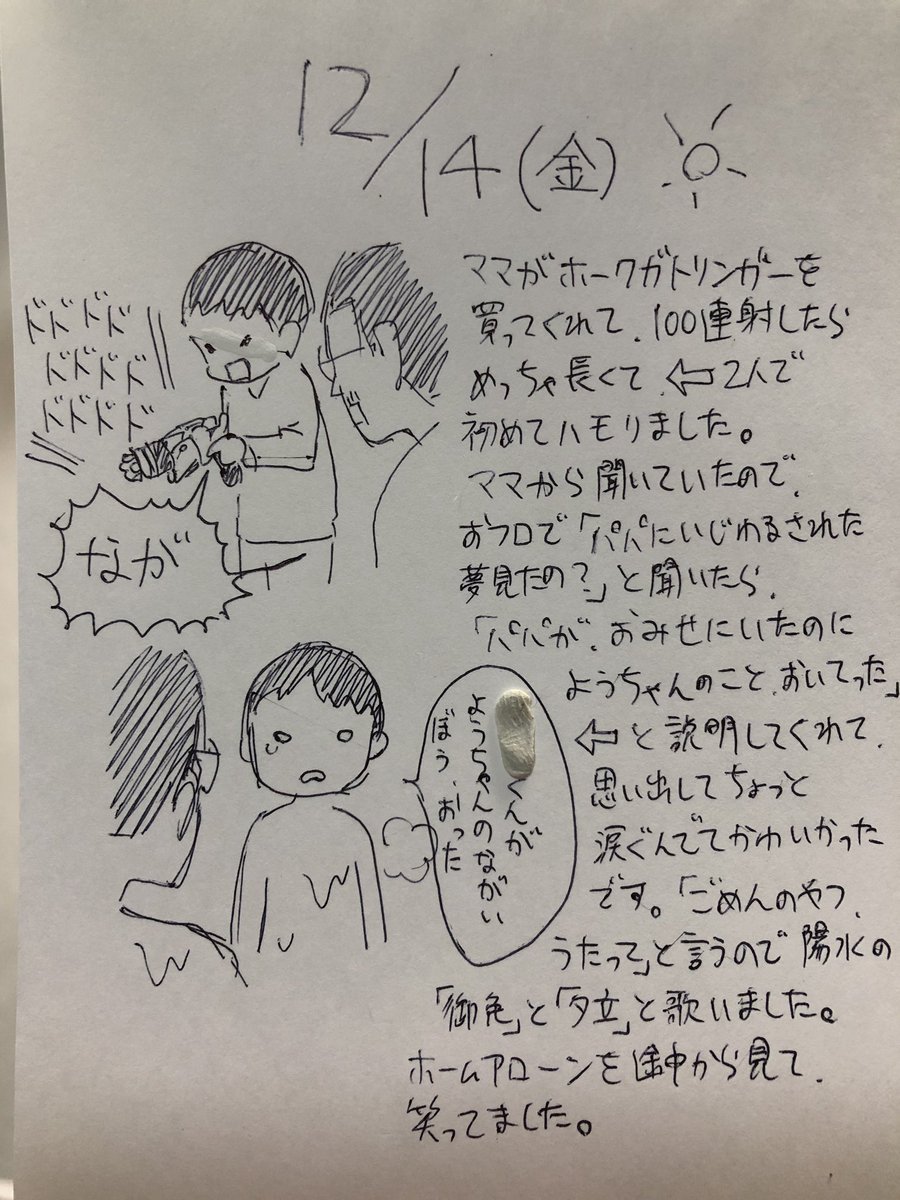 12/14(金)
ドドドド
ドドドド
ドドドド
なが
ママがホークガトリンガーを
買ってくれて、100連射したら
めっちゃ長くて、⇦2人で
初めてハモりました。
ママから聞いていたので、
おフロで「パパにいじわるされた
夢見たの?」と聞いたら、
「パパが、おみせにいたのに
ようちゃんのこと、おいてった」
⇦と説明してくれて、
思い出してちょっと
涙ぐんでてかわいかった
です。「ごめんのやつ、
うたって」と言うので陽水の
くんが
ようちゃんのながい
ぼう、おった
「御免」と「夕立」と歌いました。
ホームアローンを途中から見て、
笑ってました。